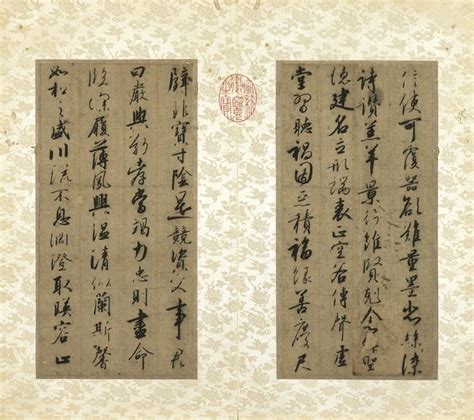 信使可覆器欲難量墨悲絲染
詩讚羔羊景行維賢剋念作聖
德建名立形端表正空谷傳聲虛
堂習聽禍因惡積福緣善慶尺
璧非寶寸陰是競資父事君
曰嚴與敬孝當竭力忠則盡命
臨深履薄夙興溫清似蘭斯馨
如松之盛川流不息淵澄取暎容止